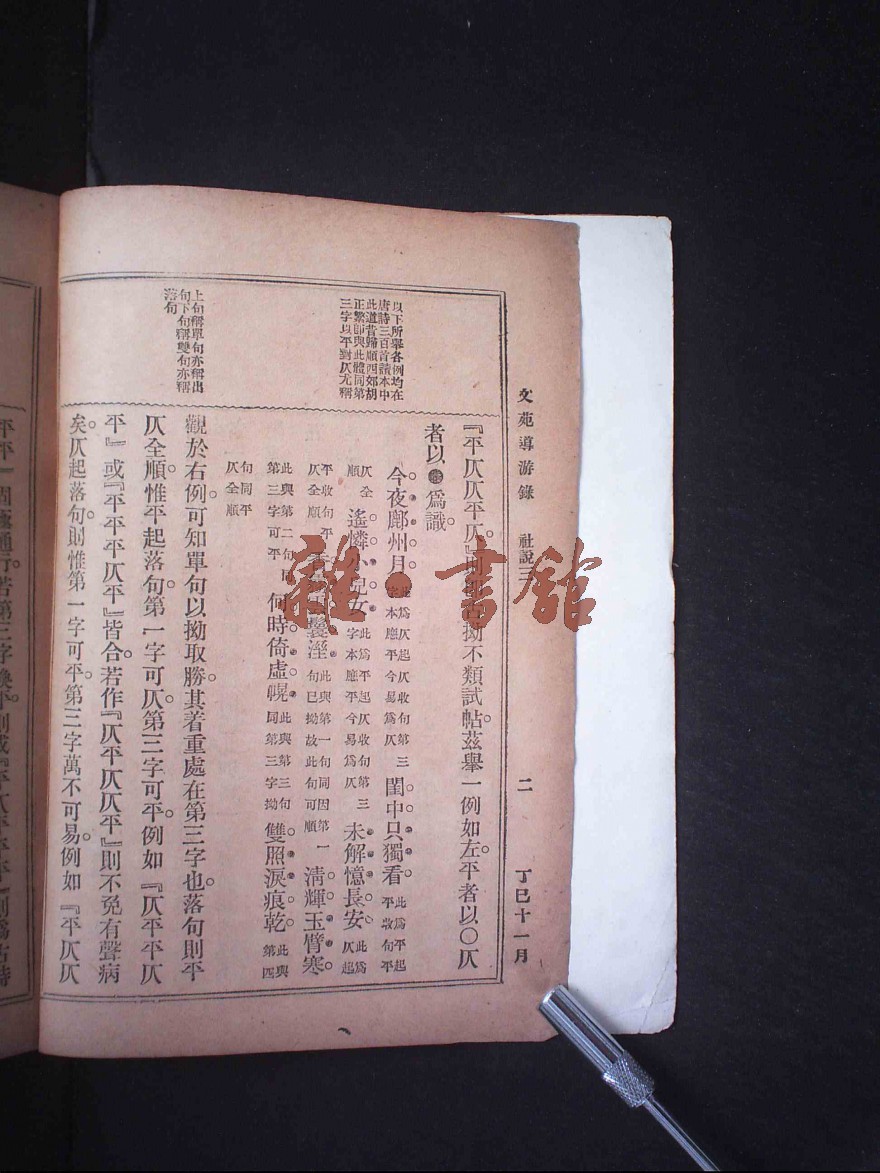 文苑導游錄 社說三 二 丁巳十一月
以下所舉各例均在
唐詩三百首讀本中
此道昔歸順四郊胡
正繁即與此體同第
三字以平對仄尤稱
上句稱單句亦稱出
句下句稱雙句亦稱
落句
『平仄仄平仄』則 拗不類試帖茲舉一例如左平者以○仄
者以 爲識
今夜鄜州月 此爲仄起仄收句第三字本應平今易爲仄 閨中只獨看 此爲平起平收句平
仄全順 遙憐小兒女 此爲平起仄收句第三字本應平今易爲仄 未解憶長安 此爲仄起
平收句平仄全順 鬟溼 此與第一句同因第一句已拗故此句可順 淸輝玉臂寒
此與第二句同第三字可平 何時倚虛幌 此與第三句同第三字拗 雙照淚痕乾 此與第四
句同平仄全順
觀於右例可知單句以拗取勝其着重處在第三字也落句則平
仄全順惟平起落句第一字可仄第三字可平例如『仄平平仄
平』或『平平平仄平』皆合若作『仄平仄仄平』則不免有聲病
矣仄起落句則惟第一字可平第三字萬不可易例如『平仄仄
雜·書館